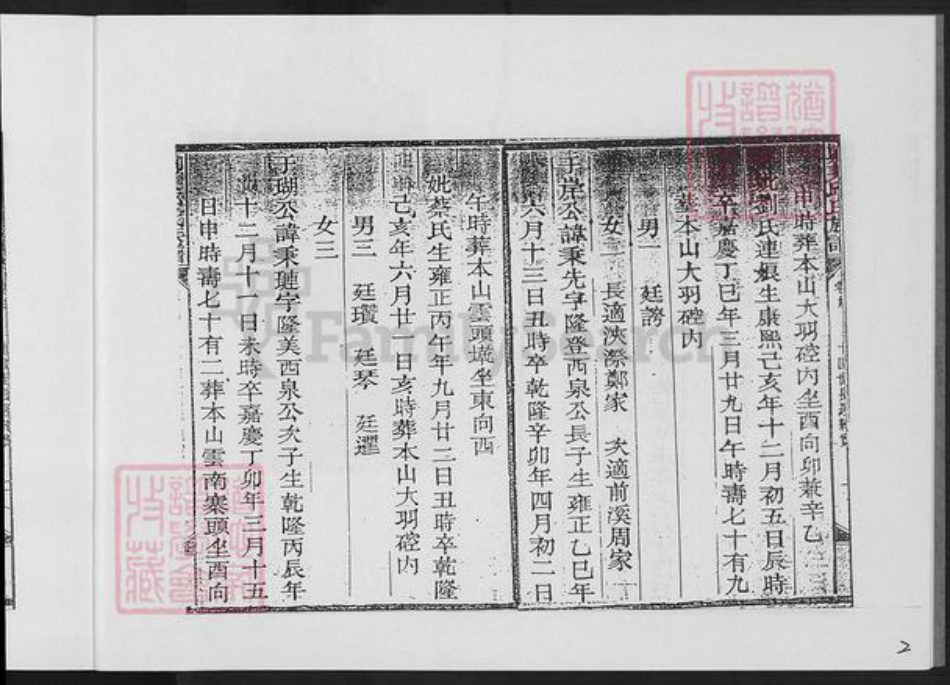 申時葬本山大羽硿內坐酉向卯兼辛乙
妣劉氏連娘生康熙己亥年十二月初五日辰時
卒嘉慶丁巳年三月廿九日午時壽七十有九
葬本山大羽硿內
男一 廷謗
女二 長適浹漈鄭家 次適前溪周家
于岸公諱秉先字隆登西泉公長子生雍正乙巳年
六月十三日丑時卒乾隆辛卯年四月初二日
午時葬本山雲頭墘坐東向西
妣蔡氏生雍正丙午年九月廿二日丑時卒乾隆
己亥年六月廿一日亥時葬本山大羽硿內
男三 廷瓚 廷琴 廷躍
女三
于瑚公諱秉璉字隆美西泉公次子生乾隆丙辰年
十二月十一日未時卒嘉慶丁卯年三月十五
日申時壽七十有二葬本山雲南寨頭坐酉向
FamilySearch
2